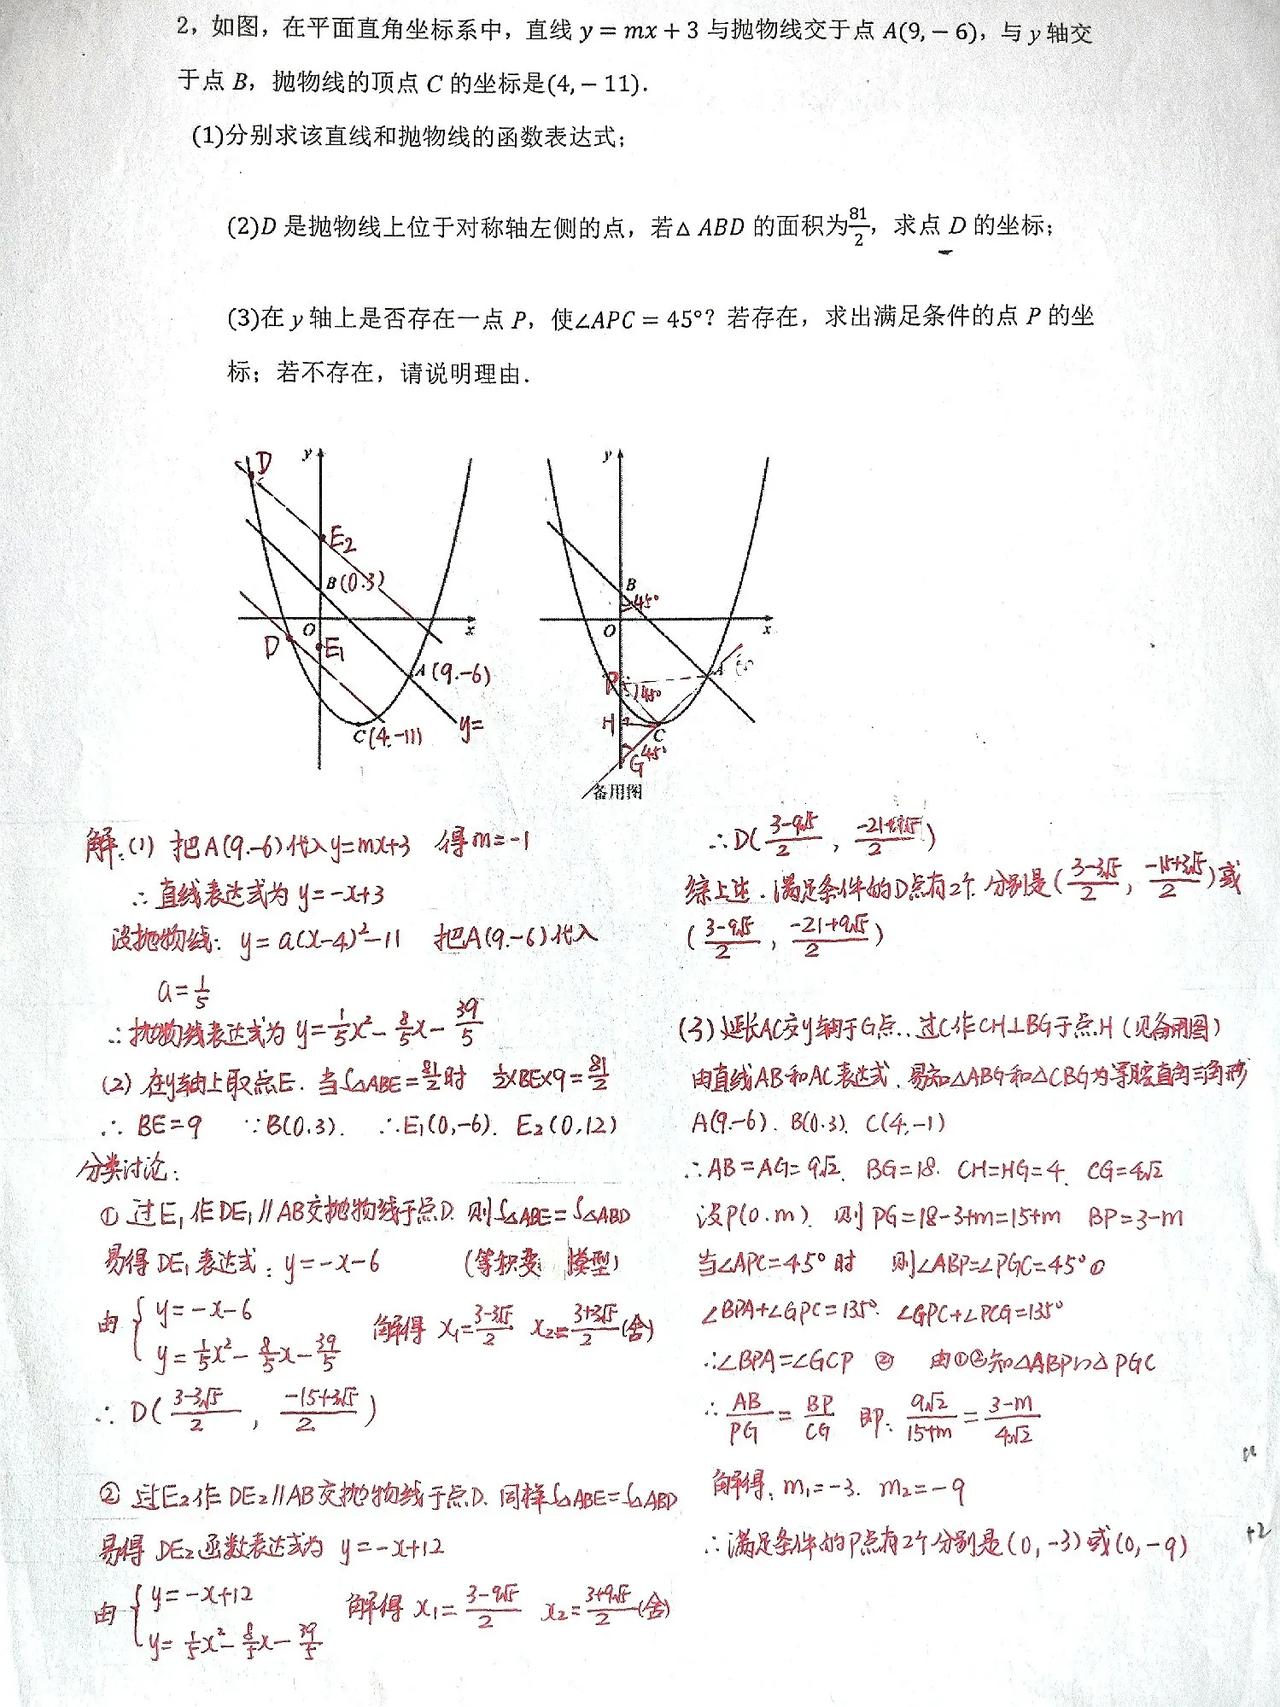 2，如图，在平面直角坐标系中，直线 y = mx + 3 与抛物线交于点 A(9, − 6)，与 y 轴交
于点 B，抛物线的顶点 C 的坐标是(4, − 11).
(1)分别求该直线和抛物线的函数表达式；
(2)D 是抛物线上位于对称轴左侧的点，若△ ABD 的面积为81/2，求点 D 的坐标；
(3)在 y 轴上是否存在一点 P，使∠APC = 45°？若存在，求出满足条件的点 P 的坐
标；若不存在，请说明理由.
y
D
E₂
B(0.3)
O
x
D
E₁
A(9.-6)
C(4,-11)
y=
y
B
45°
O
x
P
45°
A
H
C
45°
G
备用图
解:(1) 把A(9.-6)代入y=mx+3 得m=-1
∴直线表达式为 y=-x+3
设抛物线: y=a(x-4)²-11 把A(9.-6)代入
a=1/5
∴抛物线表达式为 y=1/5x²-8/5x-39/5
(2) 在y轴上取点E. 当S△ABE=81/2时 1/2×BE×9=81/2
∴ BE=9 ∵B(0.3). ∴E₁(0,-6). E₂(0,12)
分类讨论:
① 过E₁作DE₁∥AB交抛物线于点D. 则S△ABE=S△ABD
易得DE₁表达式: y=-x-6 (等积变 模型)
由 { y=-x-6
y=1/5x²-8/5x-39/5 解得 x₁=(3-3√5)/2 x₂=(3+3√5)/2(舍)
∴ D((3-3√5)/2 , (-15+3√5)/2)
② 过E₂作DE₂∥AB交抛物线于点D. 同样S△ABE=S△ABD
易得DE₂函数表达式为 y=-x+12
由 { y=-x+12
y=1/5x²-8/5x-39/5 解得 x₁=(3-9√5)/2 x₂=(3+9√5)/2(舍)
∴D((3-9√5)/2 , (-21+9√5)/2)
综上述. 满足条件的D点有2个 分别是((3-3√5)/2 , (-15+3√5)/2)或
((3-9√5)/2 , (-21+9√5)/2)
(3) 延长AC交y轴于G点. 过C作CH⊥BG于点H (见备用图)
由直线AB和AC表达式. 易知△ABG和△CBG为等腰直角三角形
A(9.-6). B(0.3). C(4,-1)
∴AB=AG=9√2. BG=18. CH=HG=4. CG=4√2
设P(0.m). 则PG=18-3+m=15+m BP=3-m
当∠APC=45°时 则∠ABP=∠PGC=45°①
∠BPA+∠GPC=135°. ∠GPC+∠PCG=135°
∴∠BPA=∠GCP ② 由①②知△ABP∽△PGC
∴ AB/PG=BP/CG 即: 9√2/(15+m)=(3-m)/4√2
解得: m₁=-3. m₂=-9
∴满足条件的P点有2个分别是(0,-3)或(0,-9)
+2